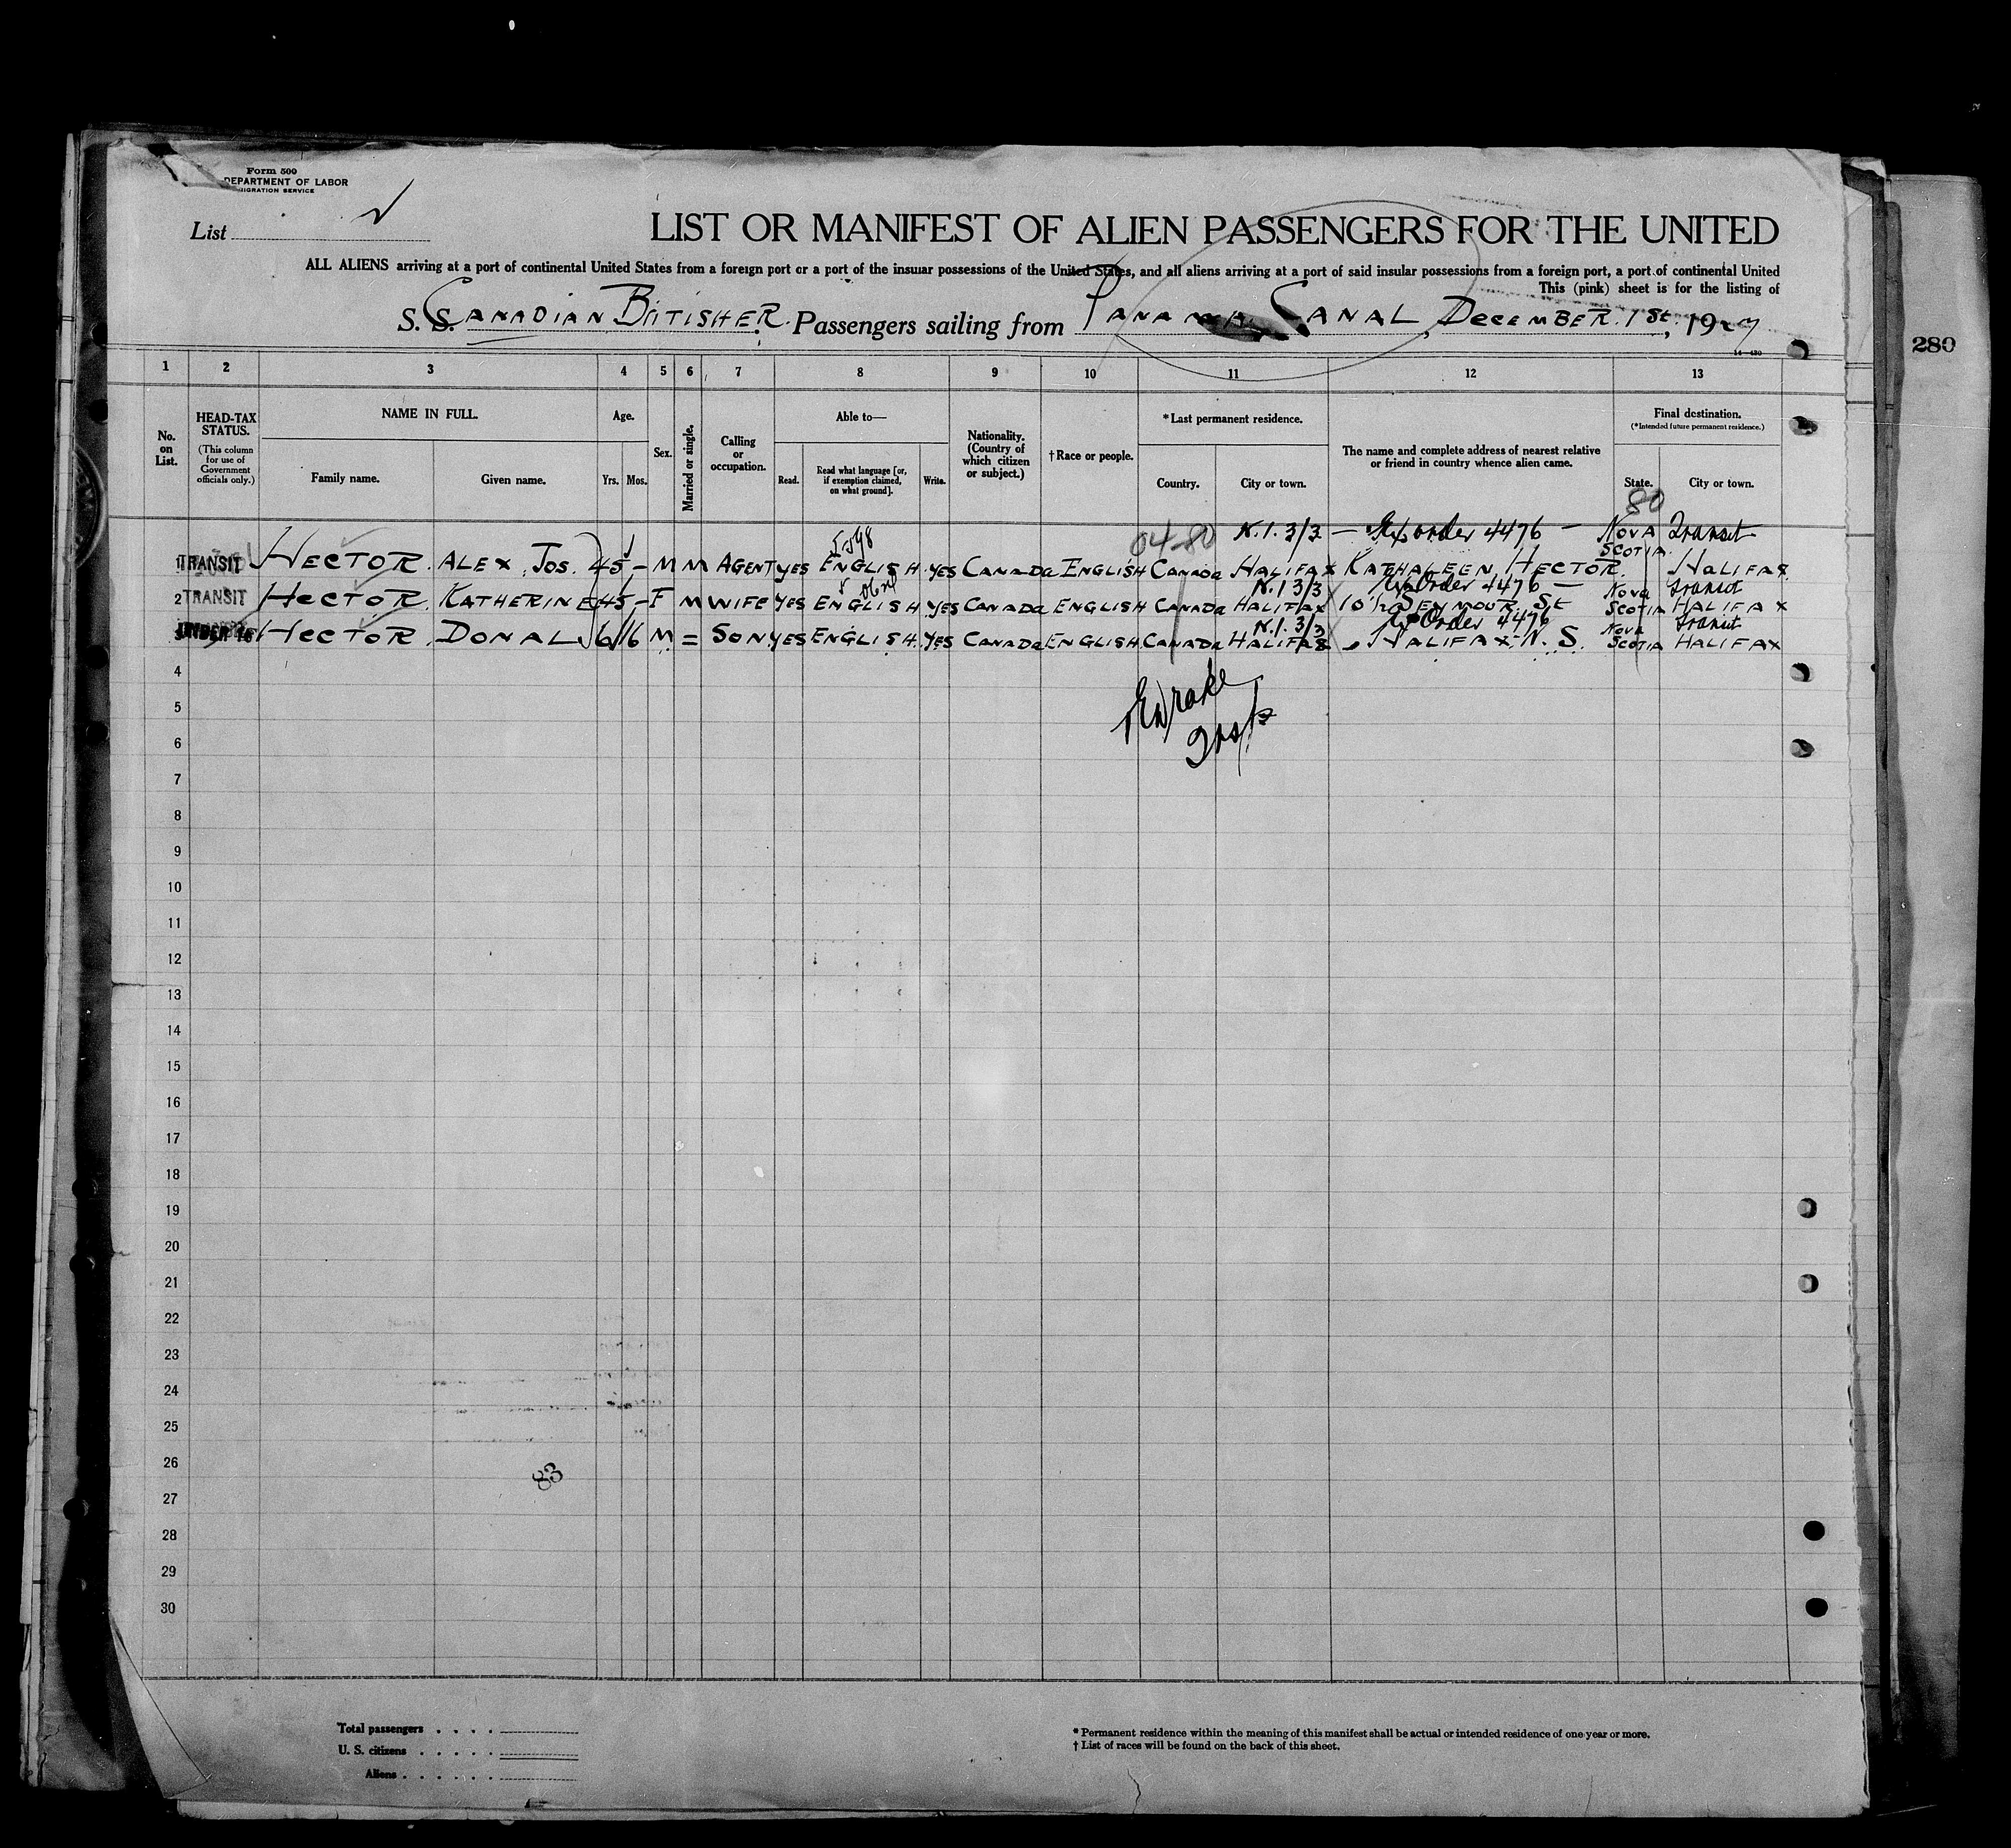 Form 500
DEPARTMENT OF LABOR
IMMIGRATION SERVICE
List
LIST OR MANIFEST OF ALIEN PASSENGERS FOR THE UNITED
ALL ALIENS arriving at a port of continental United States from a foreign port or a port of the insular possessions of the United States, and all aliens arriving at a port of said insular possessions from a foreign port, a port of continental United
This (pink) sheet is for the listing of
S. S. CANADIAN BRITISHER. Passengers sailing from PANAMA CANAL, DECEMBER. 1st, 1927
14—430
280
1 2 3 4 5 6 7 8 9 10 11 12 13
No. on List.
HEAD-TAX STATUS.
(This column for use of Government officials only.)
NAME IN FULL.
Family name. Given name.
Age.
Yrs. Mos.
Sex.
Married or single.
Calling or occupation.
Able to—
Read. Read what language [or, if exemption claimed, on what ground]. Write.
Nationality. (Country of which citizen or subject.)
†Race or people.
*Last permanent residence.
Country. City or town.
The name and complete address of nearest relative or friend in country whence alien came.
Final destination.
(*Intended future permanent residence.)
State. City or town.
80
04-80 N.1. 3/3 — order 4476 — NOVA SCOTIA Transit
1 TRANSIT HECTOR. ALEX. JOS. 45 — M M AGENT YES ENGLISH. YES CANADA ENGLISH CANADA HALIFAX KATHALEEN HECTOR HALIFAX
N.1 3/3 Order 4476 — Nova SCOTIA Transit
2 TRANSIT HECTOR. KATHERINE 45 - F M WIFE YES ENGLISH YES CANADA ENGLISH CANADA HALIFAX 10½ SEYMOUR St HALIFAX
N.1. 3/3 Order 4476 Nova SCOTIA Transit
3 UNDER 16 HECTOR DONAL 6 6 M = SON YES ENGLISH. YES CANADA ENGLISH. CANADA HALIFAX HALIFAX N. S. HALIFAX
4
5
6
7
8
9
10
11
12
13
14
15
16
17
18
19
20
21
22
23
24
25
26
83
27
28
29
30
Total passengers . . . .
U. S. citizens . . . . .
Aliens . . . . . .
* Permanent residence within the meaning of this manifest shall be actual or intended residence of one year or more.
† List of races will be found on the back of this sheet.